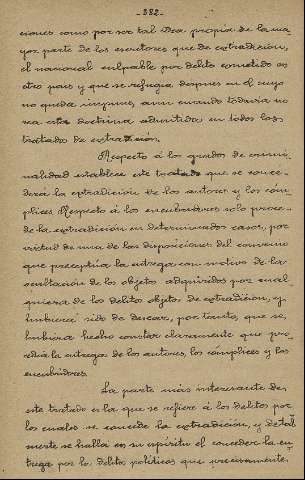 -382-
ciones como por ser tal idea propia de la ma-
yor parte de los escritores que de extradicion,
el nacional culpable por delito cometido en
otro pais y que se refugia despues en el suyo
no queda impune, aun cuando todavia no
sea esta doctrina admitida en todos los
tratado de extradición.
Respecto á los grados de crimi-
nalidad establece este tratado que se conce-
derá la extradición de los autores y los cóm-
plices. Respecto á los encubridores solo proce-
de la extradición en determinados casos, por
virtud de una de las disposiciones del convenio
que preceptúa la entrega con motivo de la
ocultación de los objetos adquiridos por cual-
quiera de los delito objetos de extradición, y
hubiera sido de desear, por tanto, que se,
hubiera hecho constar claramente que pro-
cedia la entrega de los autores, los cómplices y los
encubridores.
La parte más interesante de,
este tratado es la que se refiere á los delitos por
los cuales se concede la extradición, y
mente se halla en su espiritu el conceder la en-
trega por lo delitos politicos que precisamente.